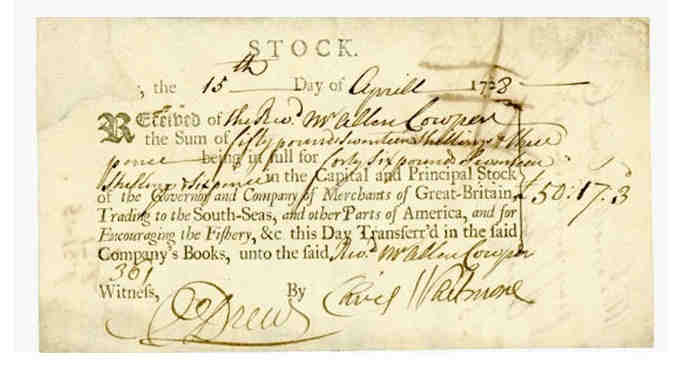 STOCK.
; the 15th Day of Aprill 1728
Received of the Revd. Mr Allen Cowper
the Sum of fifty pound Seventeen Shillings & three
pence being in full for forty Six pound Seventeen
Shillings & Six pence in the Capital and Principal Stock
of the Governor and Company of Merchants of Great-Britain £50:17.3
Trading to the South-Seas, and other Parts of America, and for
Encouraging the Fishery, &c this Day Transferr'd in the said
Company's Books, unto the said Revd. Mr Allen Cowper
361
Witness, By
Drew